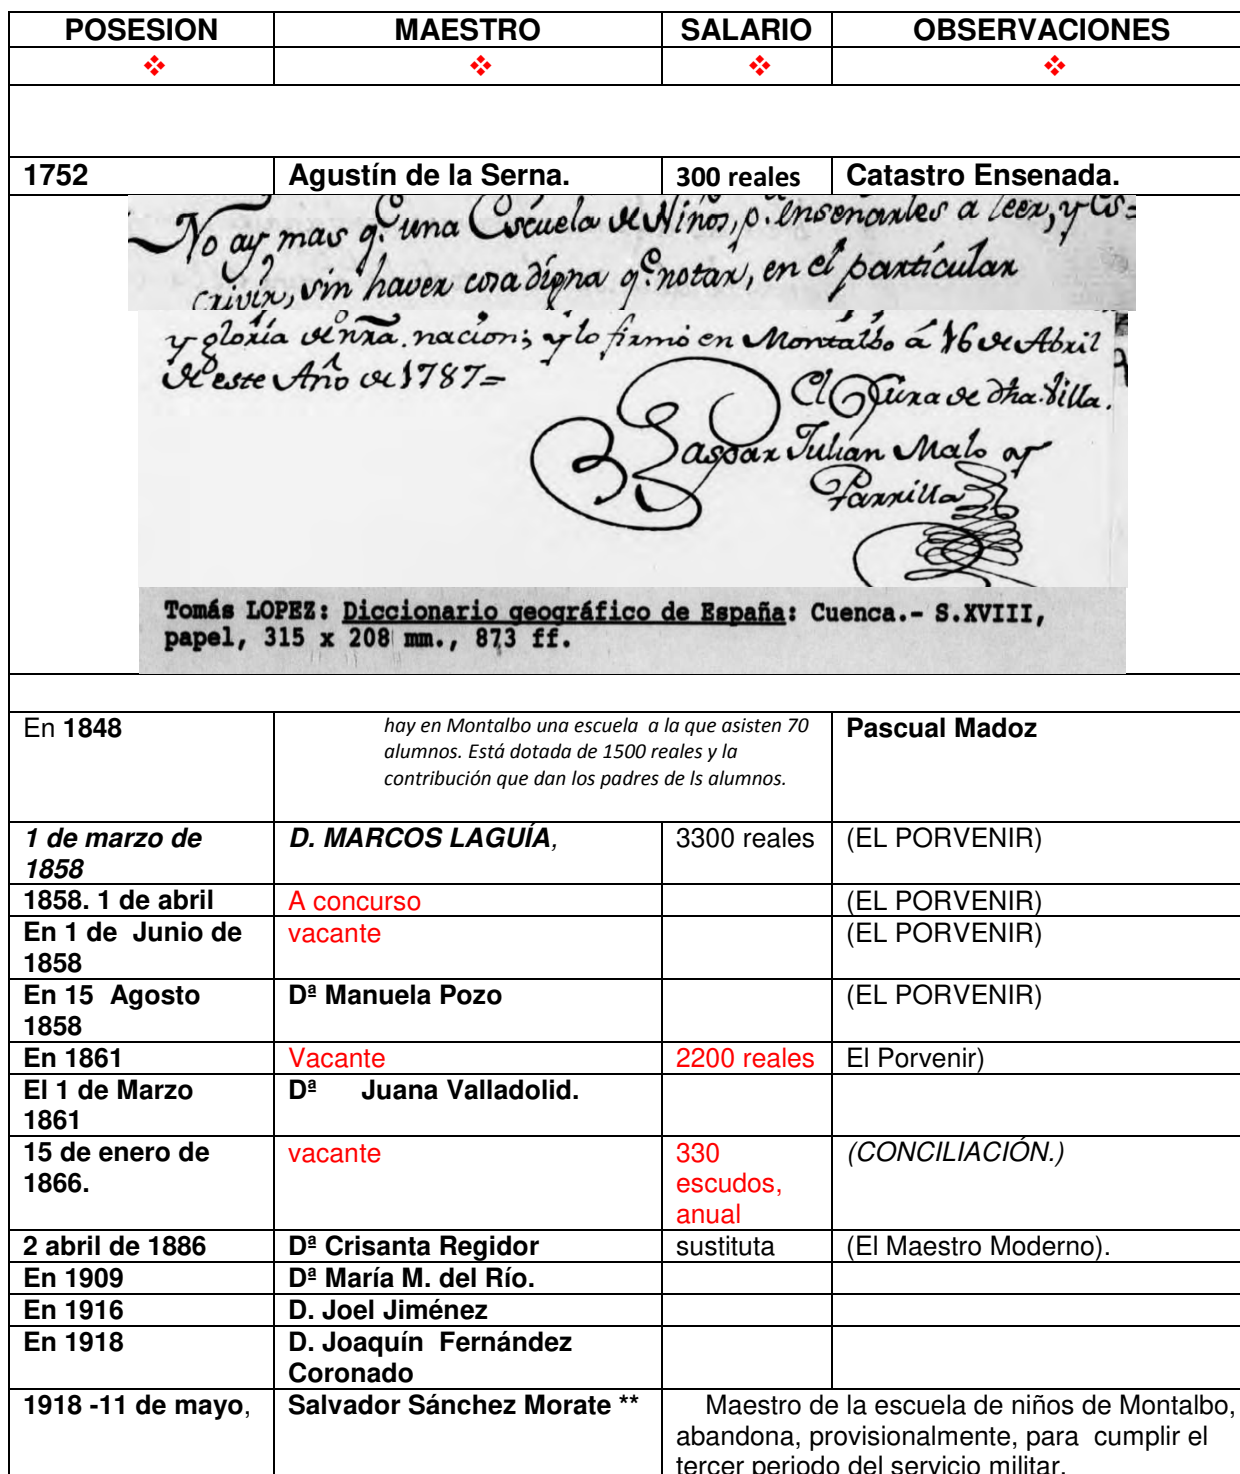 POSESION MAESTRO SALARIO OBSERVACIONES
1752 Agustín de la Serna. 300 reales Catastro Ensenada.
No ay mas q.e una Escuela de Niños, p.a enseñarles a leer, y Es=
crivir, sin haver cosa digna q.e notar, en el particular
y gloria de nra. nacion; y lo firmo en Montalbo á 16 de Abril
de este Año de 1787=
El Cura de dha. Villa.
Gaspar Julian Malo y
Parrilla
Tomás LOPEZ: Diccionario geográfico de España: Cuenca.- S.XVIII,
papel, 315 x 208 mm., 873 ff.
En 1848 hay en Montalbo una escuela a la que asisten 70 Pascual Madoz
alumnos. Está dotada de 1500 reales y la
contribución que dan los padres de ls alumnos.
1 de marzo de D. MARCOS LAGUÍA, 3300 reales (EL PORVENIR)
1858
1858. 1 de abril A concurso (EL PORVENIR)
En 1 de Junio de vacante (EL PORVENIR)
1858
En 15 Agosto Dª Manuela Pozo (EL PORVENIR)
1858
En 1861 Vacante 2200 reales El Porvenir)
El 1 de Marzo Dª Juana Valladolid.
1861
15 de enero de vacante 330 (CONCILIACIÓN.)
1866. escudos,
anual
2 abril de 1886 Dª Crisanta Regidor sustituta (El Maestro Moderno).
En 1909 Dª María M. del Río.
En 1916 D. Joel Jiménez
En 1918 D. Joaquín Fernández
Coronado
1918 -11 de mayo, Salvador Sánchez Morate ** Maestro de la escuela de niños de Montalbo,
abandona, provisionalmente, para cumplir el
tercer periodo del servicio militar.